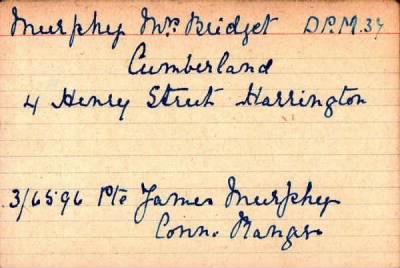 Murphy Mrs Bridget D.P.M.37
Cumberland
4 Henry Street Harrington
3/6596 Pte James Murphy
Conn. Rangs